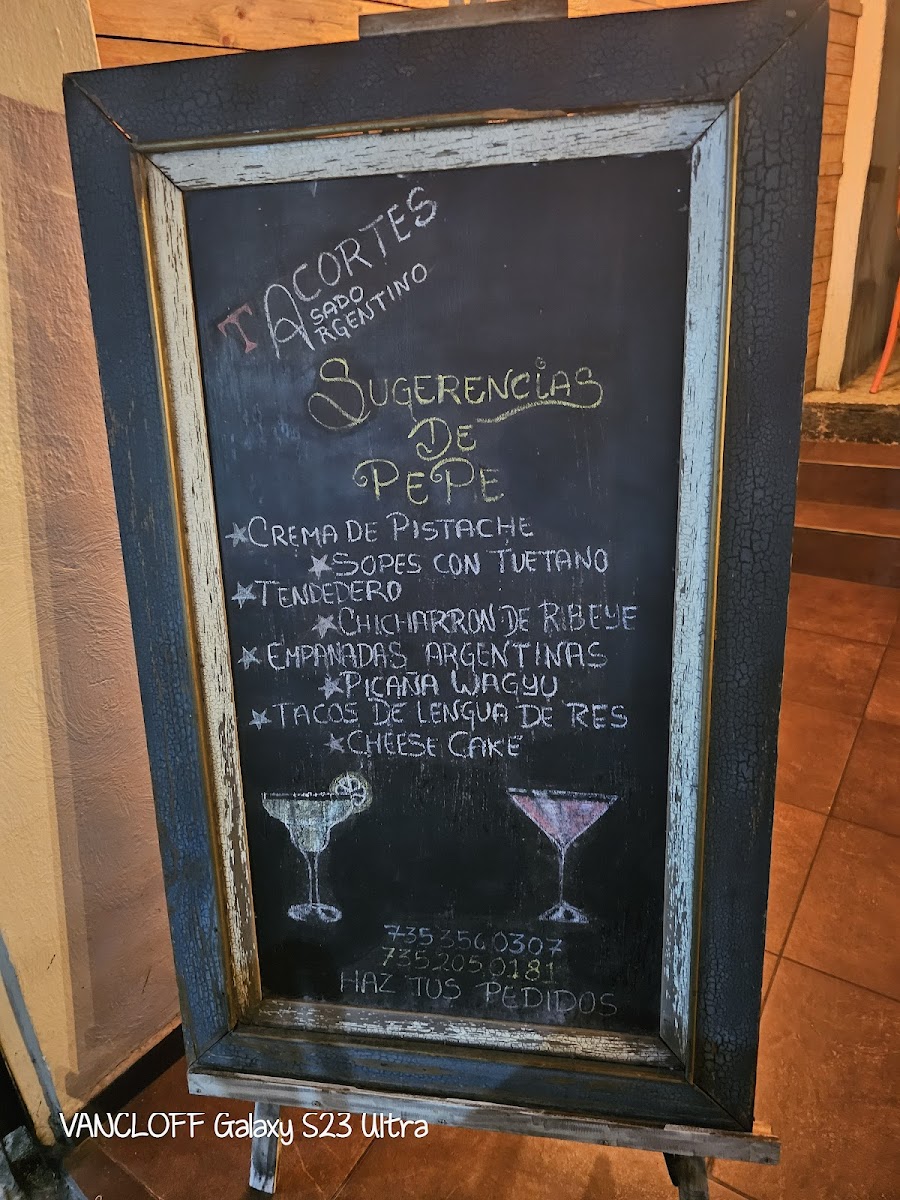 TACORTES
ASADO
ARGENTINO
SUGERENCIAS
DE
PEPE
CREMA DE PISTACHE
SOPES CON TUETANO
TENDEDERO
CHICHARRON DE RIBEYE
EMPANADAS ARGENTINAS
PICAÑA WAGYU
TACOS DE LENGUA DE RES
CHEESE CAKE
735 356 0307
735 205 0181
HAZ TUS PEDIDOS
VANCLOFF Galaxy S23 Ultra